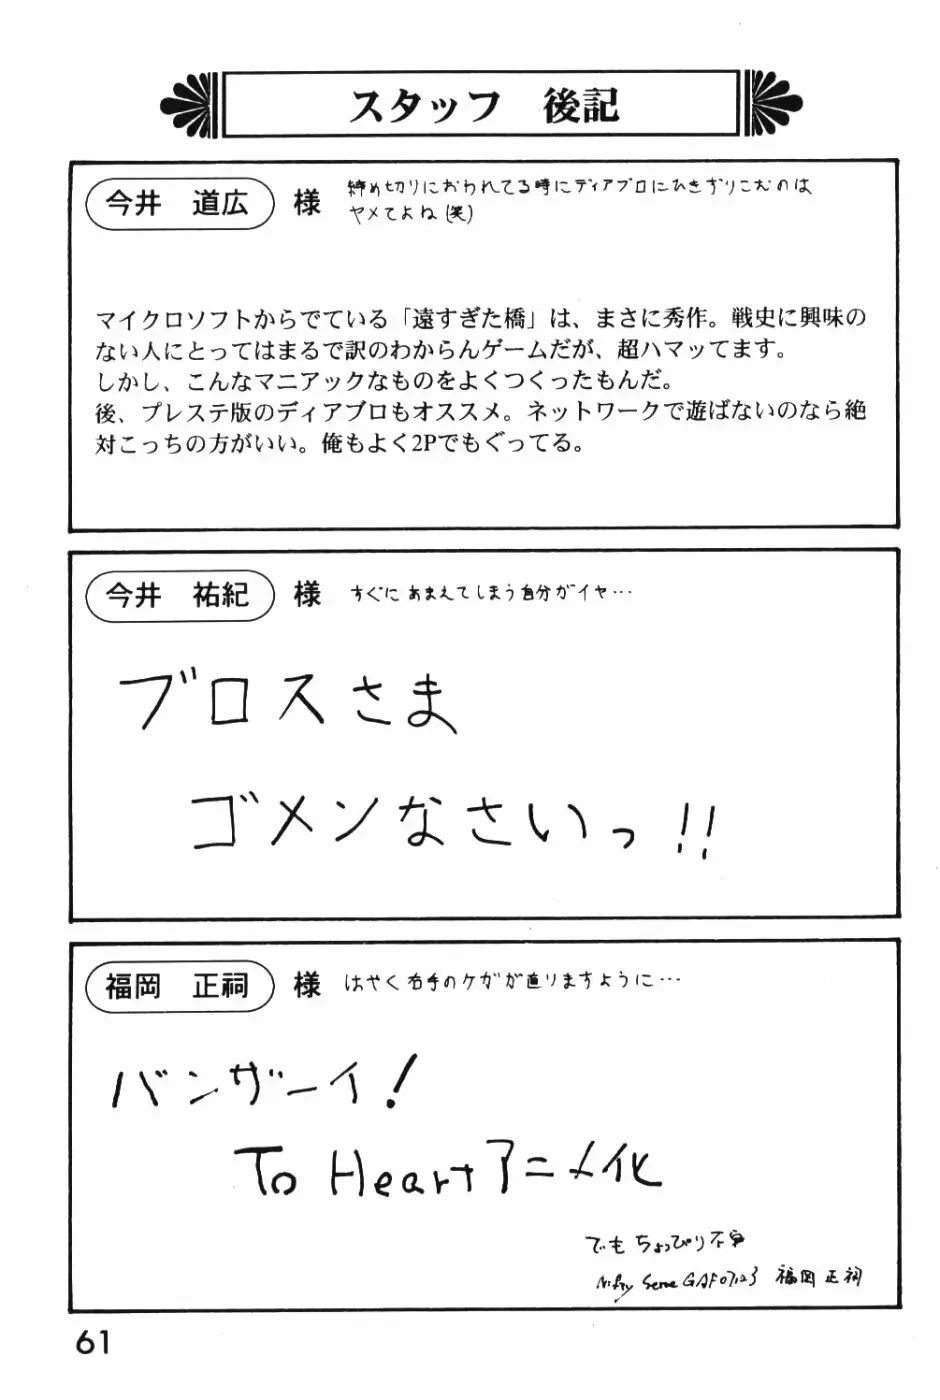 スタッフ　後記
今井　道広 様 締め切りにおわれてる時にディアブロにひきずりこむのは
ヤメてよね(笑)
マイクロソフトからでている「遠すぎた橋」は、まさに秀作。戦史に興味の
ない人にとってはまるで訳のわからんゲームだが、超ハマッてます。
しかし、こんなマニアックなものをよくつくったもんだ。
後、プレステ版のディアブロもオススメ。ネットワークで遊ばないのなら絶
対こっちの方がいい。俺もよく2Pでもぐってる。
今井　祐紀 様 すぐにあまえてしまう自分がイヤ…
ブロスさま
ゴメンなさいっ!!
福岡　正祠 様 はやく右手のケガが直りますように…
バンザーイ!
To Heartアニメ化
でもちょっぴり不安
Nifty Serve GAF07123 福岡正祠
61